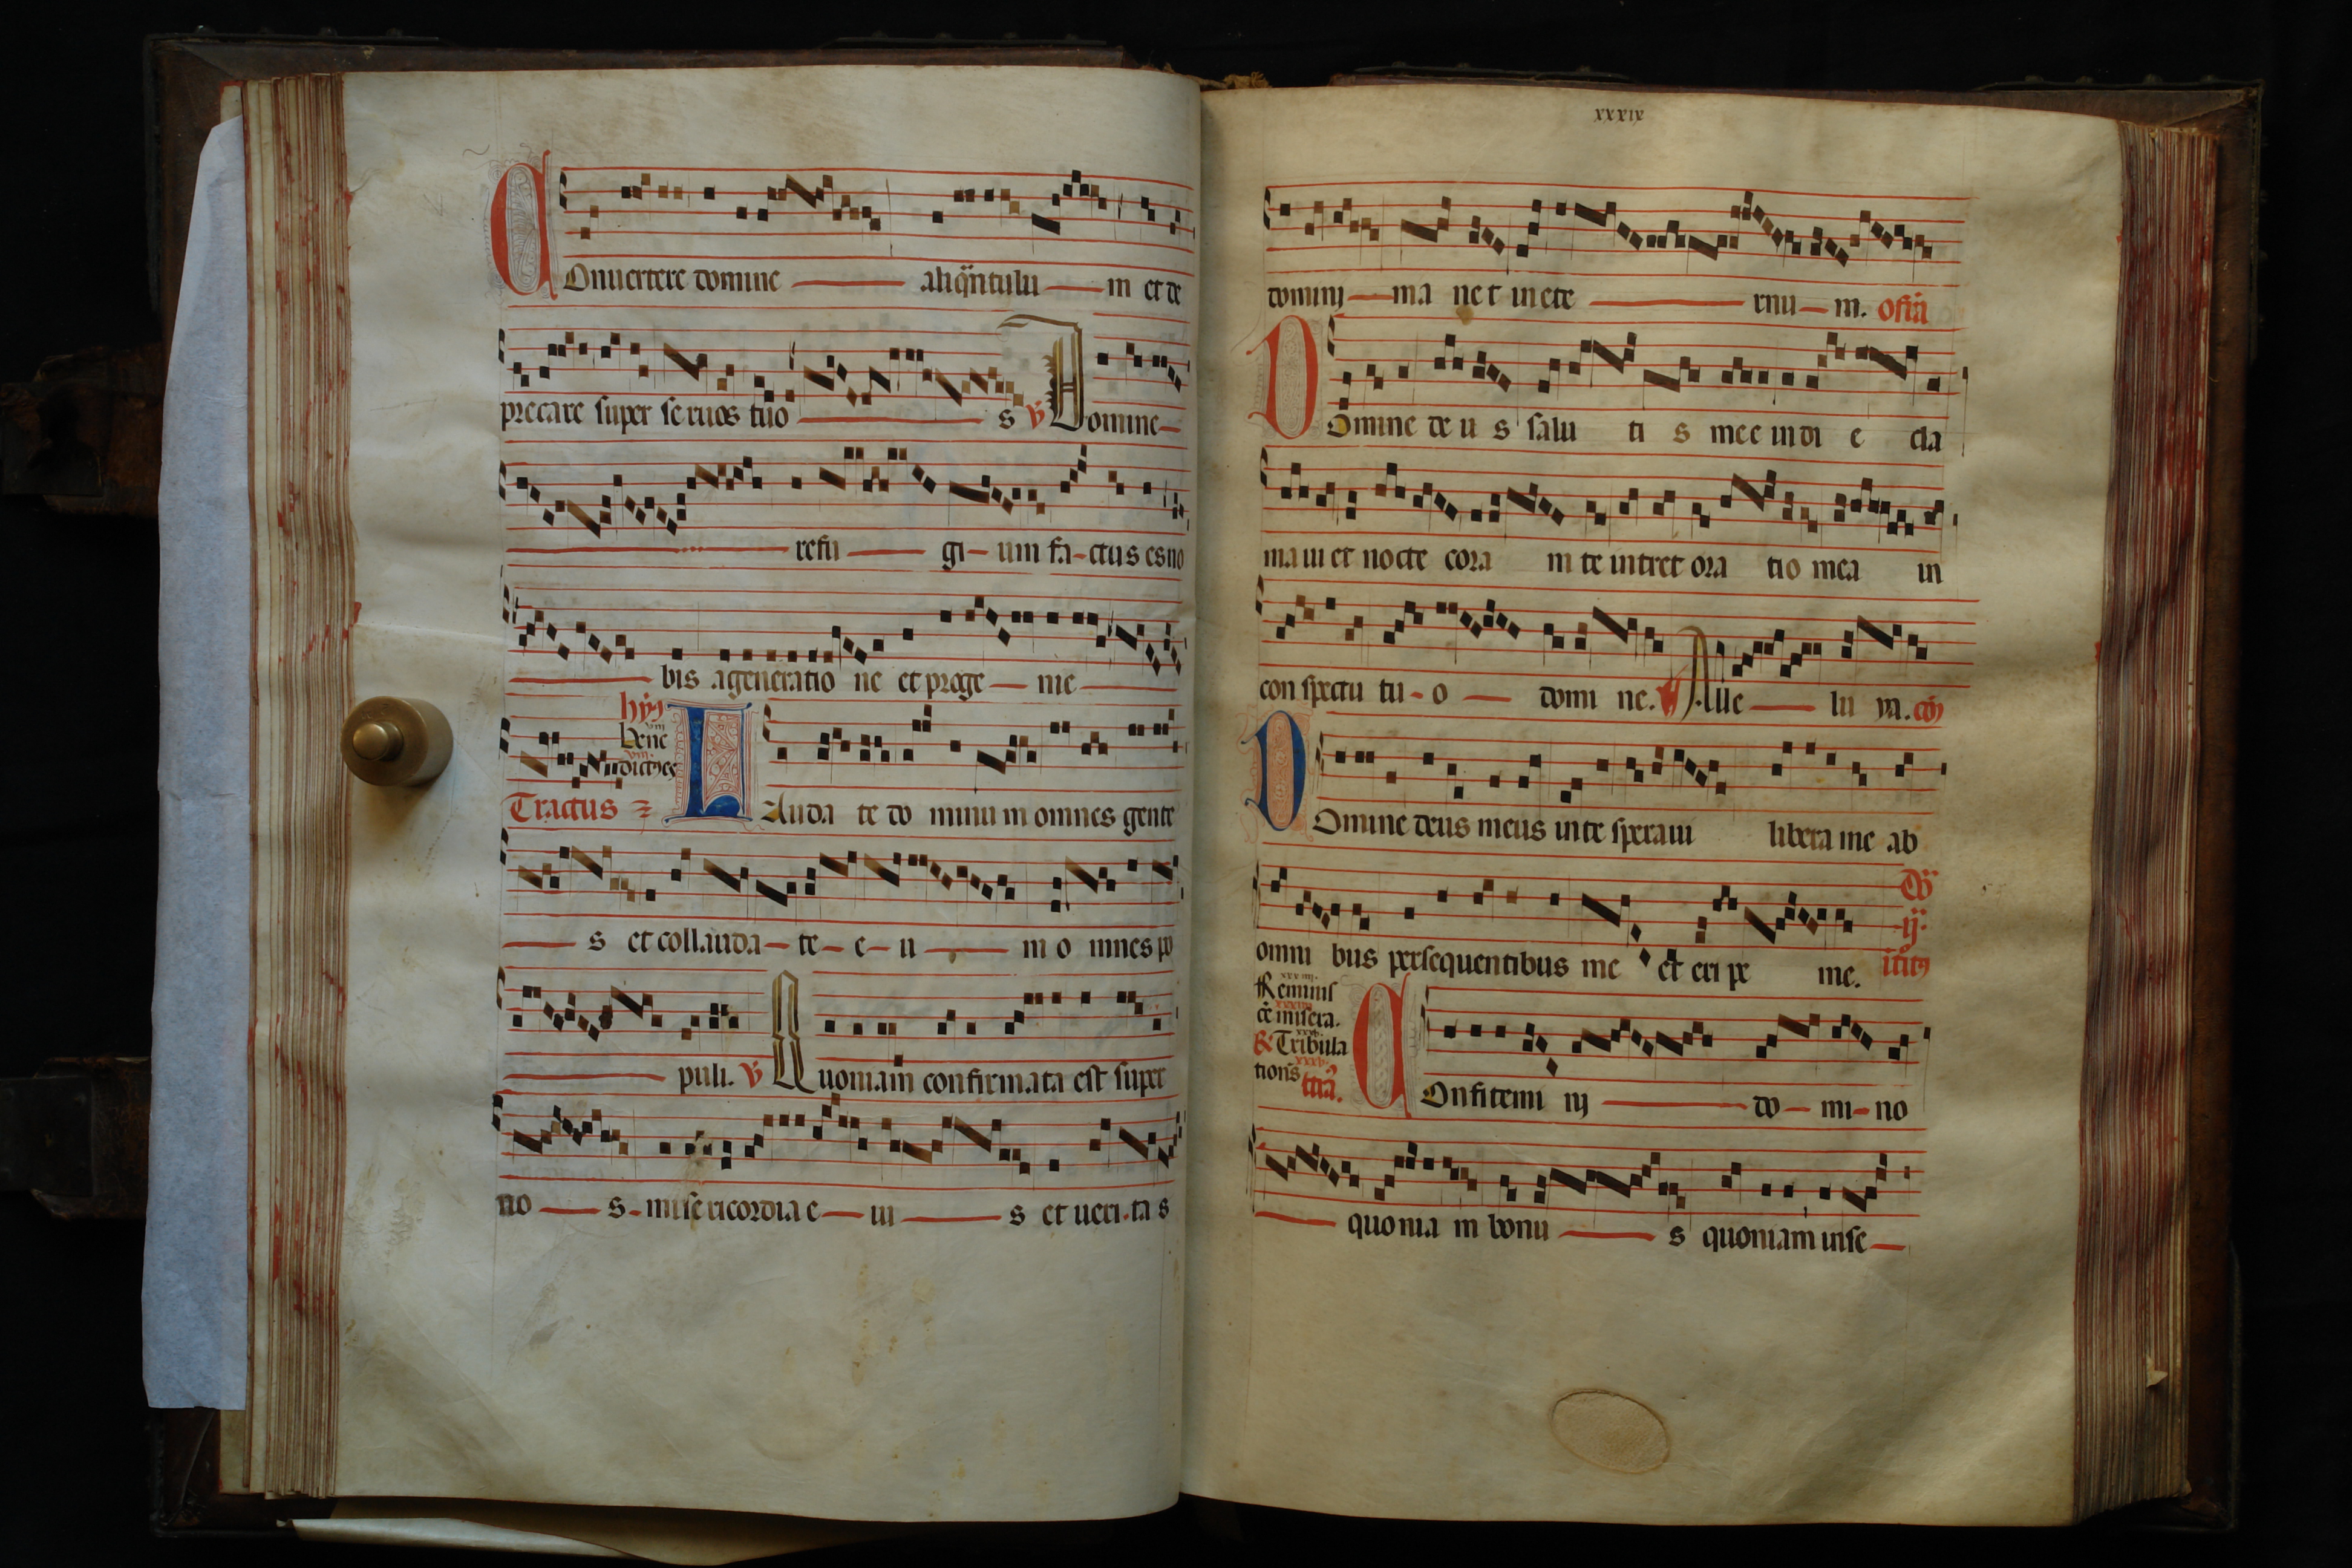 COnuertere domine aliq̃ntulu m et de
precare super se ruos tuo s ℣ Domine
refu gi um fa ctus es no
bis a generatio ne et proge nie
hyꝫ
viii
Bene
viii.
dictꝰes
Tractus
LAuda te do minu m omnes gente
s et collauda te e u m o mnes po
puli. ℣ Quoniam confirmata est super
no s misericordia e iu s et ueri ta s
xxxix
domini ma ne t in ete rnu m. Ofr̃a
DOmine de u s salu ti s mee in di e cla
maui et nocte cora m te intret ora tio mea in
con spectu tu o domi ne. Alle lu ya. cōꝫ
DOmine deus meus in te speraui libera me ab
omni bus persequentibus me et eri pe me.
ij.
Reminis
cẽ misera.
& Tribula
tions̃
COnfitemi nj do mi no
quonia m bonu s quoniam in se